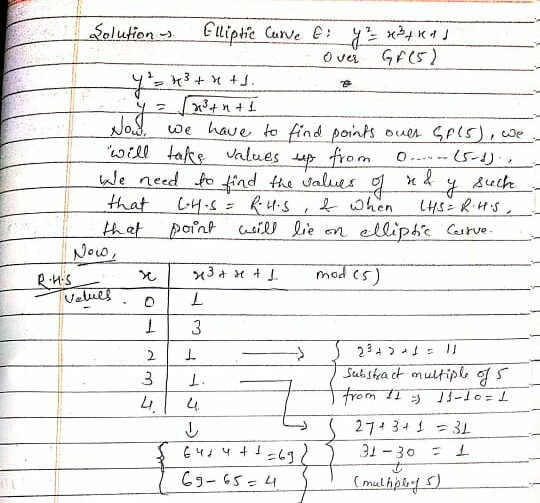 Solution → Elliptic Curve E: y² = x³+x+1
over GF(5)
y² = x³ + x + 1.
y = √x³+x+1
Now, we have to find points over GF(5), we
will take values up from 0 ...... (5-1).,
We need to find the values of x & y such
that L.H.S = R.H.S, & when LHS = R.H.S,
that point will lie on elliptic curve.
Now,
R.H.S values
x | x³ + x + 1 mod (5)
0 | 1
1 | 3
2 | 1 → { 2³ + 2 + 1 = 11
Substract multiple of 5
from 11 ⇒ 11-10 = 1
3 | 1. → { 27 + 3 + 1 = 31
31 - 30 = 1
↓
(multiple of 5)
4. | 4.
↓
{ 64 + 4 + 1 = 69 }
{ 69 - 65 = 4 }